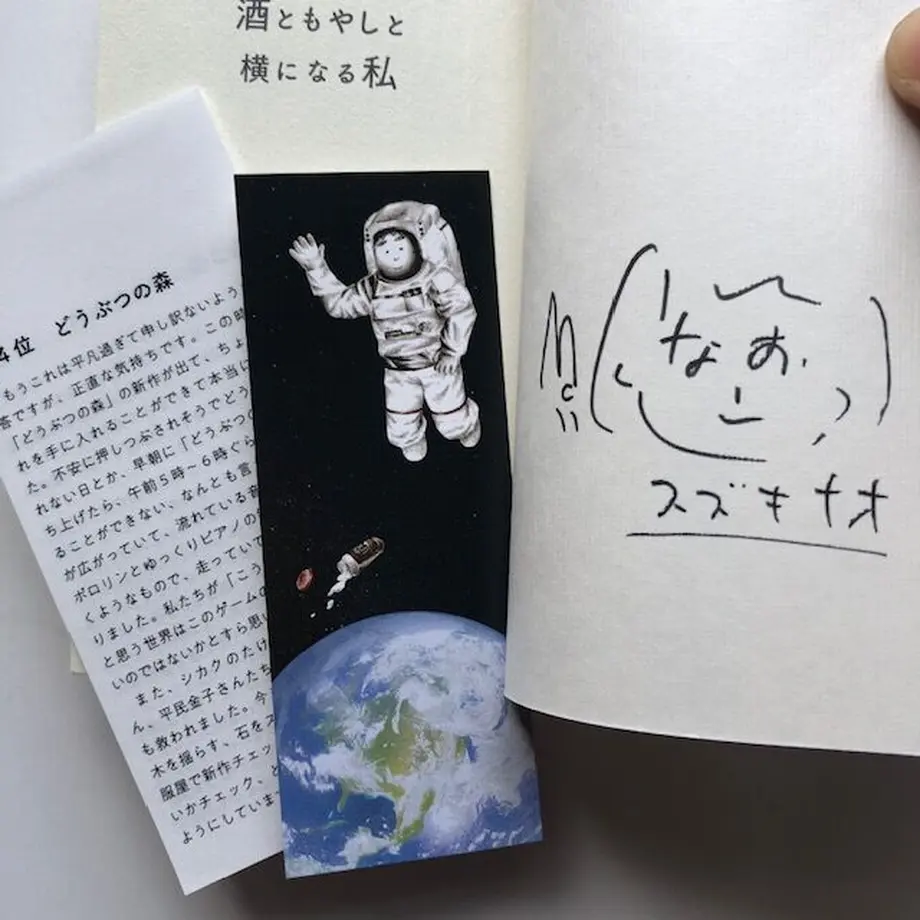 酒ともやしと
横になる私
4位　どうぶつの森
もうこれは平凡過ぎて申し訳ないよう
答ですが、正直な気持ちです。この時
「どうぶつの森」の新作が出て、ちょ
れを手に入れることができて本当に
た。不安に押しつぶされそうでどう
れない日とか、早朝に「どうぶつの
ち上げたら、午前5時〜6時ぐら
ることができない、なんとも言
が広がっていて、流れている音
ポロリンとゆっくりピアノの
くようなもので、走っていて
りました。私たちが「こう
と思う世界はこのゲームの
いのではないかとすら思い
また、シカクのたけ
ん、平民金子さんたち
も救われました。今
木を揺らす、石をス
服屋で新作チェッ
いかチェック、と
ようにしていま
なお
スズキナオ